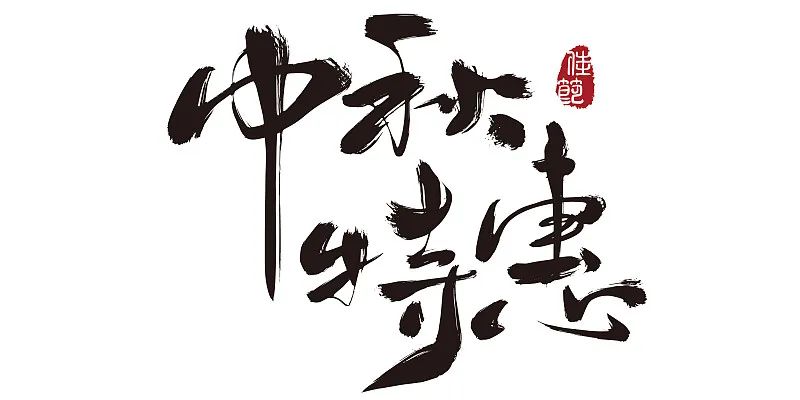 中秋
特惠
佳節